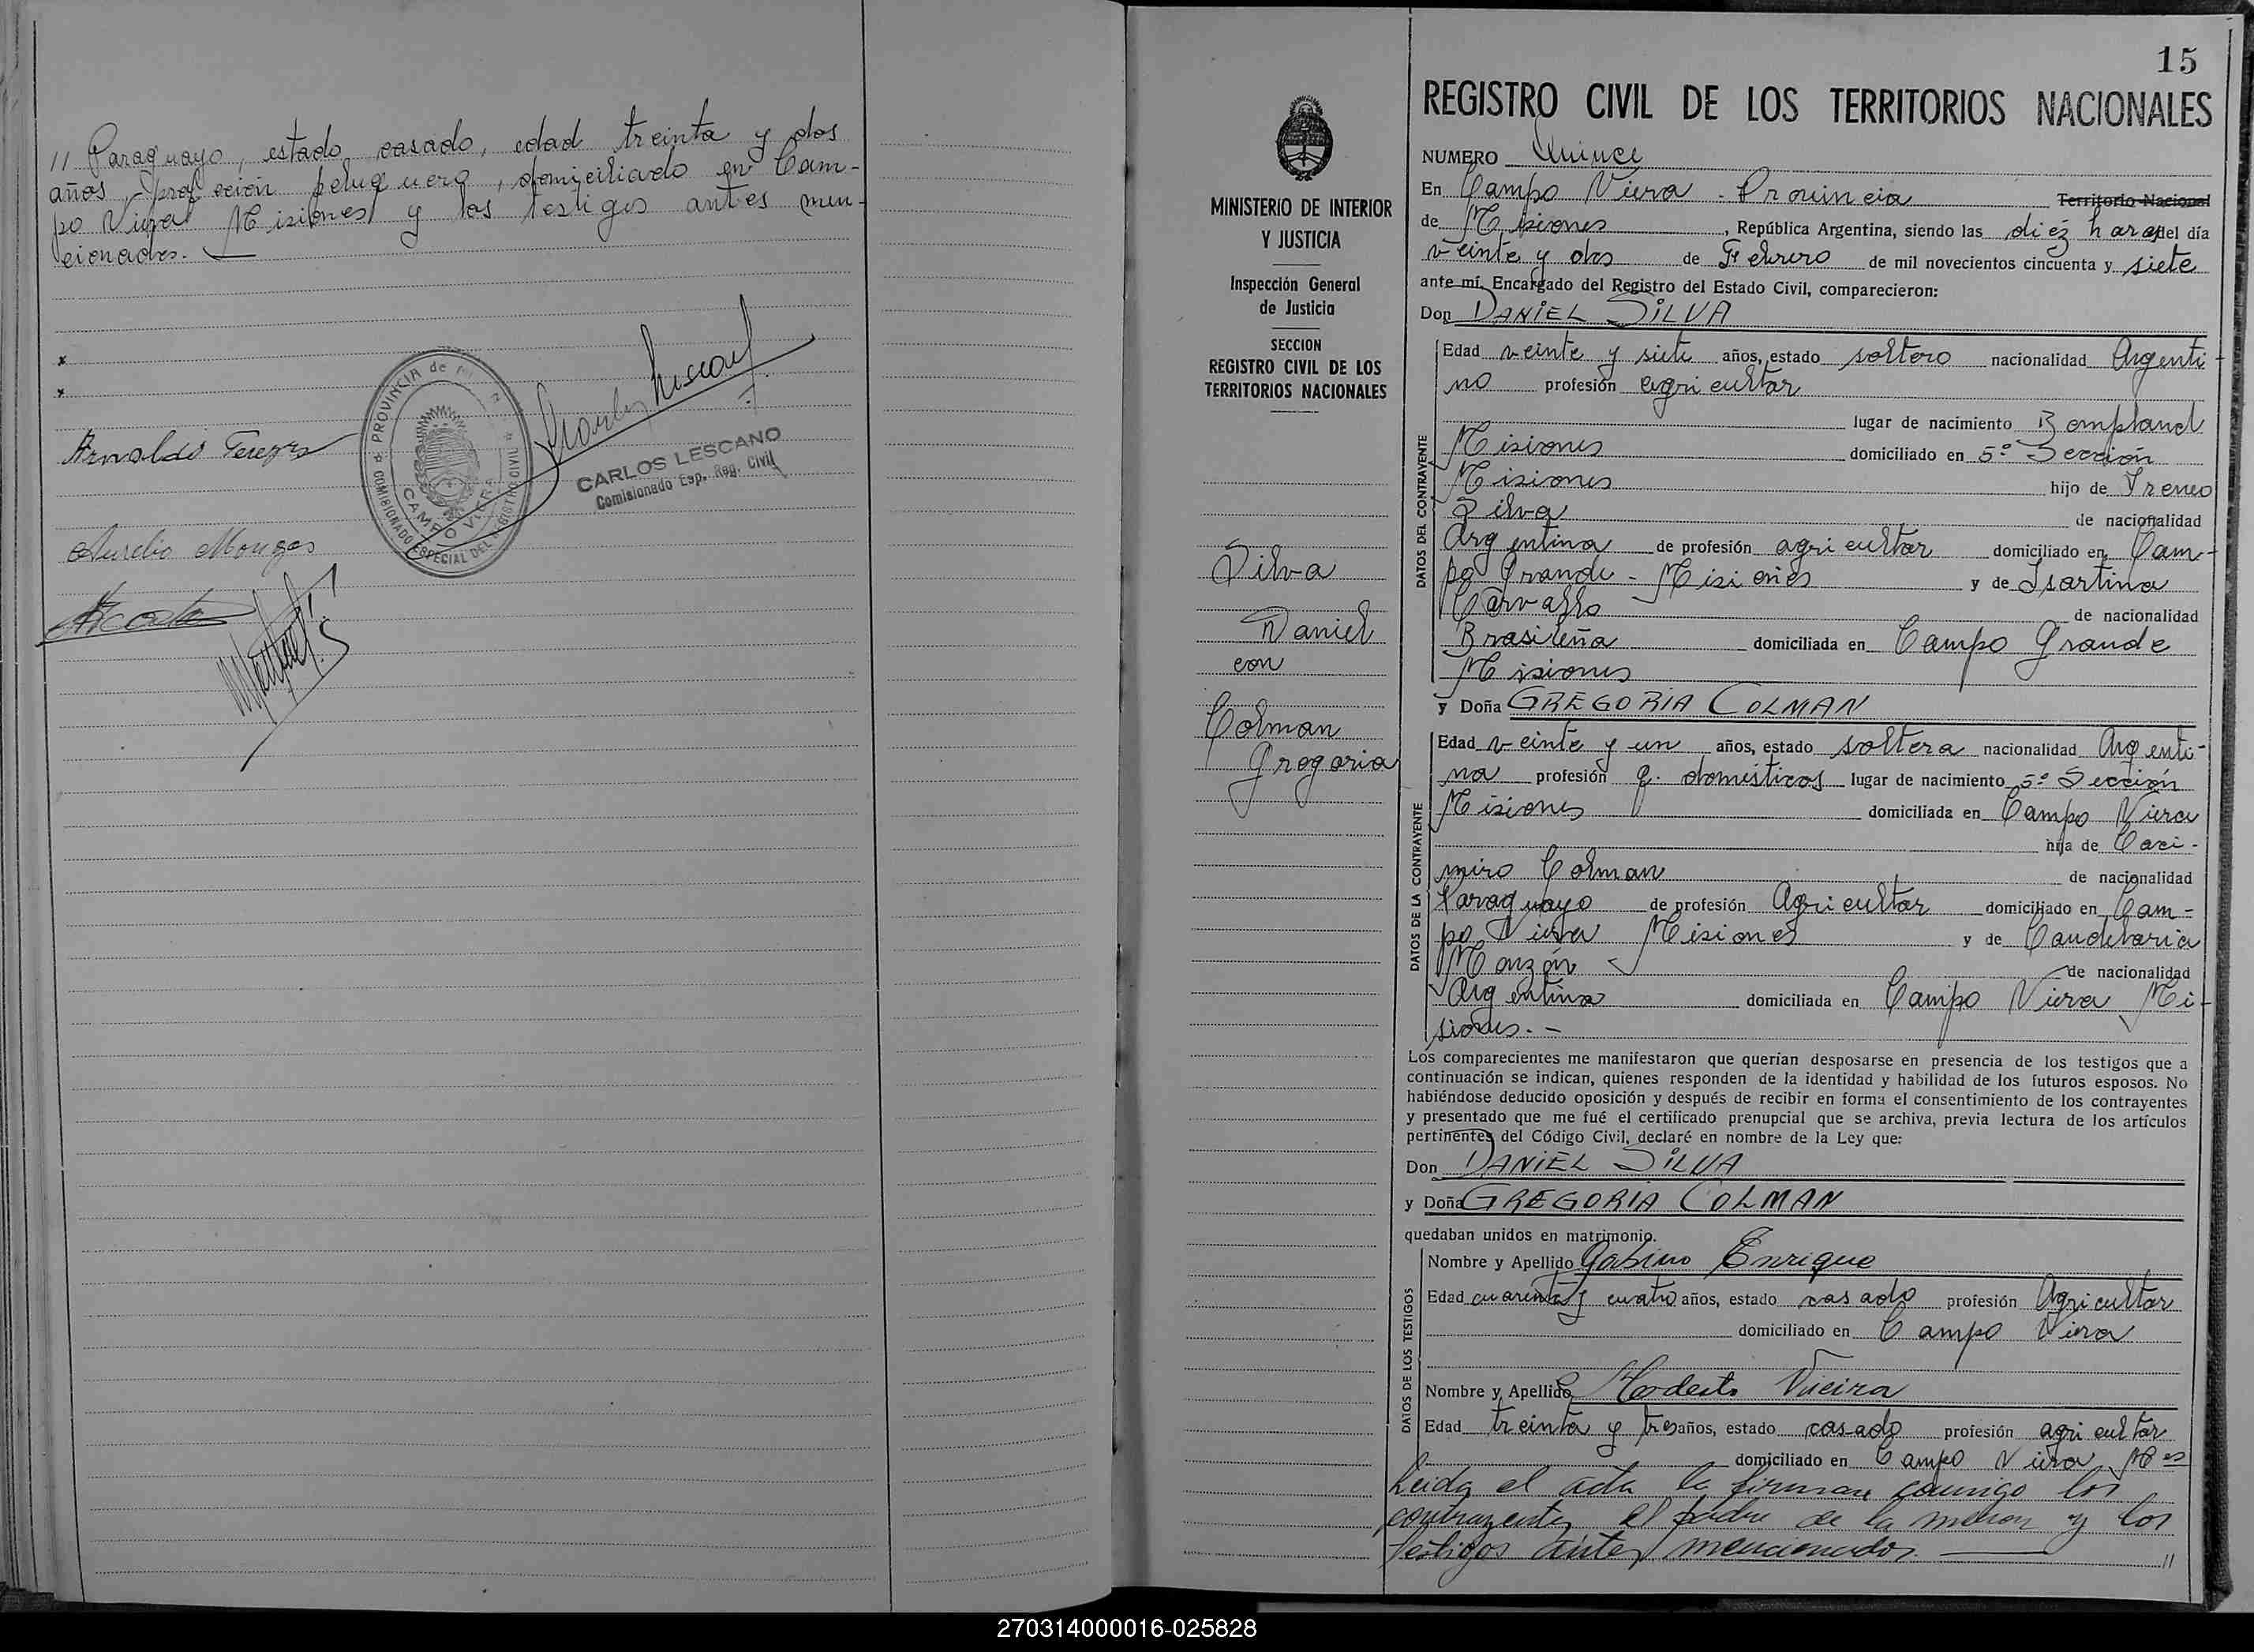 // Paraguayo, estado casado, edad treinta y dos
años, profeción peluquero, domiciliado en Cam-
po Viera Misiones y los testigos antes men-
cionados.
x
x
Arnaldo
PROVINCIA de
CAMPO VIERA
COMISIONADO ESPECIAL DEL REGISTRO CIVIL
CARLOS LESCANO
Comisionado Esp. Reg. Civil
Aurelio Monges
15
MINISTERIO DE INTERIOR
Y JUSTICIA
Inspección General
de Justicia
SECCION
REGISTRO CIVIL DE LOS
TERRITORIOS NACIONALES
Silva
Daniel
con
Colman
Gregoria
REGISTRO CIVIL DE LOS TERRITORIOS NACIONALES
NUMERO Quince
En Campo Viera - Provincia Territorio Nacional
de Misiones, República Argentina, siendo las diéz horas del día
veinte y dos de Febrero de mil novecientos cincuenta y siete
ante mí, Encargado del Registro del Estado Civil, comparecieron:
Don DANIEL SILVA
DATOS DEL CONTRAYENTE
Edad veinte y siete años, estado soltero nacionalidad Argenti-
no profesión agricultor
lugar de nacimiento Bompland
Misiones domiciliado en 5º Sección
Misiones hijo de Ireneo
Silva de nacionalidad
Argentina de profesión agricultor domiciliado en Cam-
po Grande - Misiones y de Isartina
Carvallo de nacionalidad
Brasileña domiciliada en Campo Grande
Misiones
y Doña GREGORIA COLMAN
DATOS DE LA CONTRAYENTE
Edad veinte y un años, estado soltera nacionalidad Argenti-
na profesión q. domésticos lugar de nacimiento 5º Sección
Misiones domiciliada en Campo Viera
hija de Caci-
miro Colman de nacionalidad
Paraguayo de profesión Agricultor domiciliado en Cam-
po Viera Misiones y de Candelaria
Monzón de nacionalidad
Argentina domiciliada en Campo Viera Mi-
siones. -
Los comparecientes me manifestaron que querían desposarse en presencia de los testigos que a
continuación se indican, quienes responden de la identidad y habilidad de los futuros esposos. No
habiéndose deducido oposición y después de recibir en forma el consentimiento de los contrayentes
y presentado que me fué el certificado prenupcial que se archiva, previa lectura de los artículos
pertinentes del Código Civil, declaré en nombre de la Ley que:
Don DANIEL SILVA
y Doña GREGORIA COLMAN
quedaban unidos en matrimonio.
DATOS DE LOS TESTIGOS
Nombre y Apellido Gabino Enrique
Edad cuarenta y cuatro años, estado casado profesión Agricultor
domiciliado en Campo Viera
Nombre y Apellido Modesto Vieira
Edad treinta y tres años, estado casado profesión agricultor
domiciliado en Campo Viera Mes
Leida el acta la firman conmigo los
contrayentes el padre de la menor y los
testigos antes mencionados. //
270314000016-025828